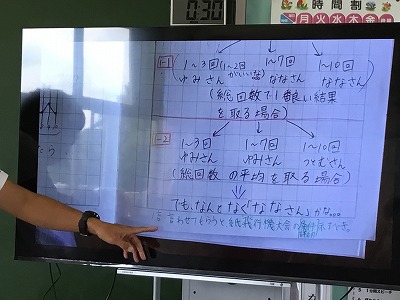 0:30
時間割
月火水木金
1-1
1~3回(1~2回がいいな) 1~7回 1~10回
ゆみさん ななさん ななさん
(総回数で1番良い結果
を取る場合)
-2
1~3回 1~7回 1~10回
ゆみさん ゆみさん つとむさん
(総回数の平均を取る場合)
でも、なんとなく「ななさん」かな…。
言わせてもらうと紙飛行機大会の